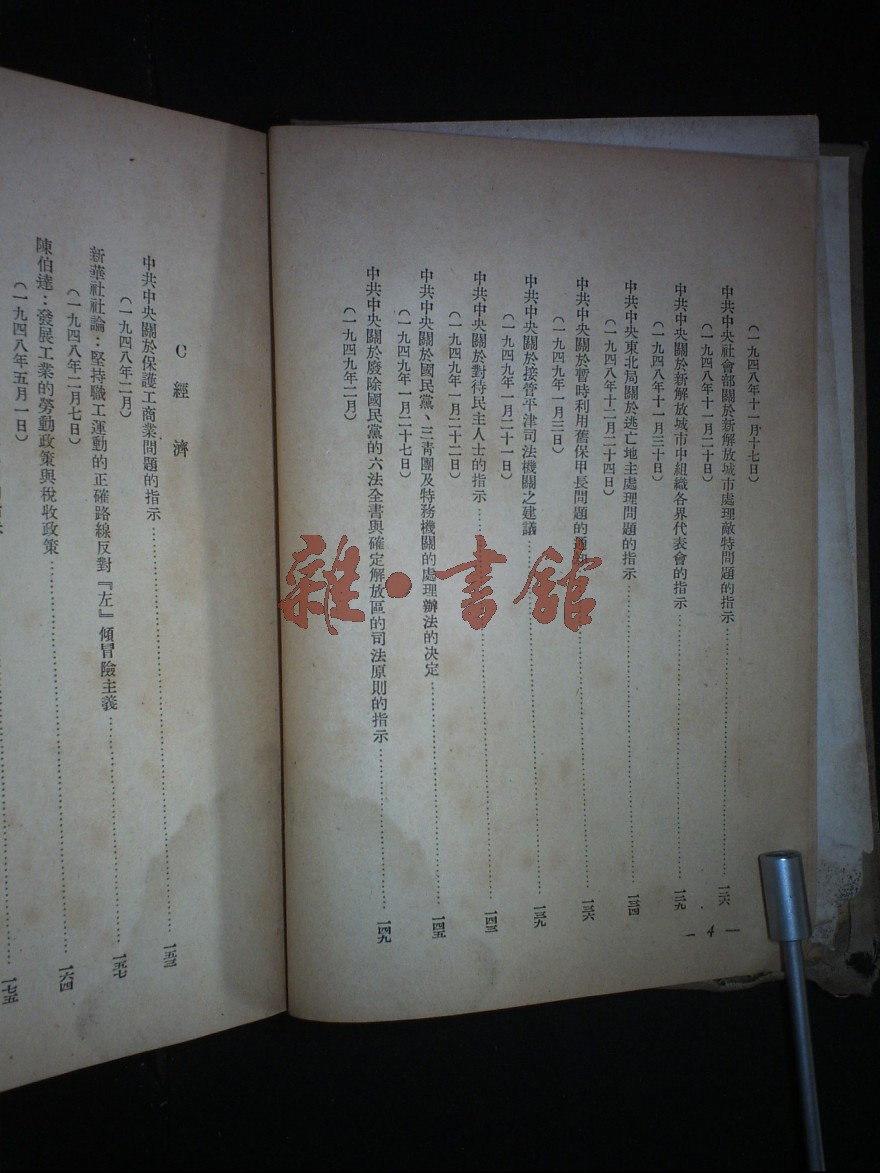 (一九四八年十一月十七日)
中共中央社會部關於新解放城市處理敵特問題的指示……一二六
(一九四八年十一月二十日)
中共中央關於新解放城市中組織各界代表會的指示……一二九
(一九四八年十一月三十日)
中共中央東北局關於逃亡地主處理問題的指示……一三四
(一九四八年十二月二十四日)
中共中央關於暫時利用舊保甲長問題的……一三六
(一九四九年一月三日)
中共中央關於接管平津司法機關之建議……一三九
(一九四九年一月二十一日)
中共中央關於對待民主人士的指示……一四三
(一九四九年一月二十二日)
中共中央關於國民黨、三青團及特務機關的處理辦法的決定……一四五
(一九四九年一月二十七日)
中共中央關於廢除國民黨的六法全書與確定解放區的司法原則的指示……一四九
(一九四九年二月)
— 4 —
C 經濟
中共中央關於保護工商業問題的指示……一五三
(一九四八年二月)
新華社社論：堅持職工運動的正確路線反對『左』傾冒險主義……一五七
(一九四八年二月七日)
陳伯達：發展工業的勞動政策與稅收政策……一六四
(一九四八年五月一日)
一七五
雜·書館